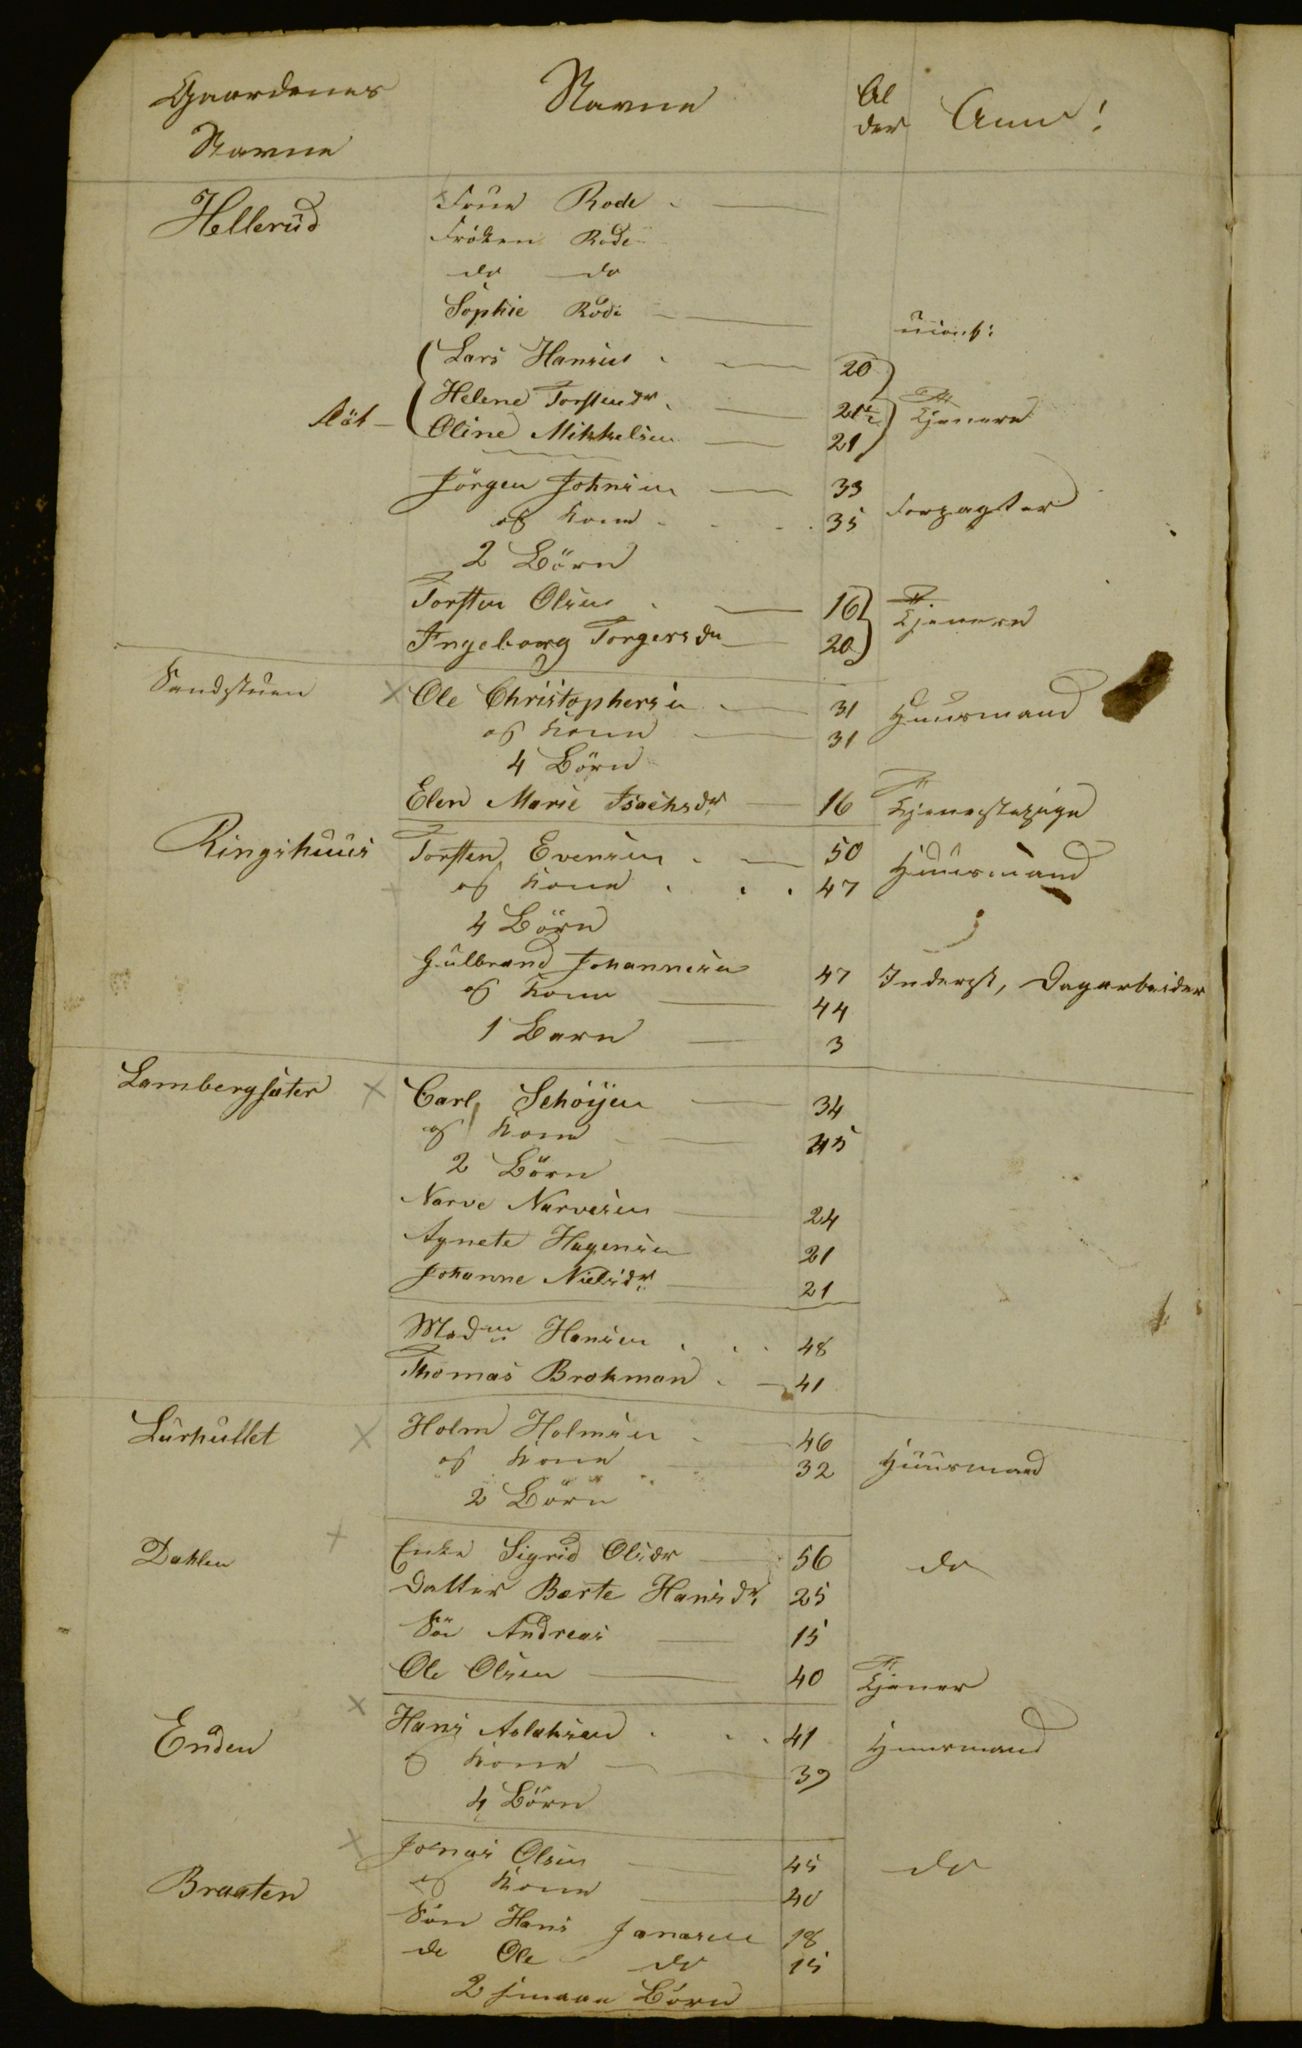 Gaardenes Navne | Navne | Al der | Anm!
Hellerud | Frue Rode
Fröken Rode
do do
Sophie Rode
Lars Hansen | 20
Helene Torstensdr | 21½ | Tjenere
Oline Mikkelsen | 21
Jörgen Johnsen | 33 | Forpagter
og Kone | 35
2 Börn
Torsten Olsen | 16 | Tjenere
Ingeborg Torgersdr | 20
Sandstuen | × Ole Christophersen | 31 | Huusmand
og Kone | 31
4 Börn
Elen Marie Isachsdr | 16 | Tjenestepige
Ringshuus | Torsten Evensen | 50 | Huusmand
og Kone | 47
4 Börn
Gulbrand Johannesen | 47 | Inderst, Dagarbeider
og Kone | 44
1 Barn | 3
Lambergsæter | × Carl Schöyen | 34
og Kone | 45
2 Börn
Narve Narvesen | 24
Agnete Hagensen | 21
Johanne Nielsdr | 21
Madm Hansen | 48
Thomas Brokman | 41
Lurhullet | × Holm Holmsen | 46 | Huusmand
og Kone | 32
2 Börn
Dahlen | × Enke Sigrid Olsdr | 56 | do
Datter Bærte Hansdr | 25
Sön Andreas | 15
Ole Olsen | 40 | Tjener
Enden | × Hans Aslaksen | 41 | Huusmand
og Kone | 39
4 Börn
Braaten | × Jonas Olsen | 45 | do
og Kone | 40
Sön Hans Jonasen | 18
do Ole do | 15
2 smaae Börn